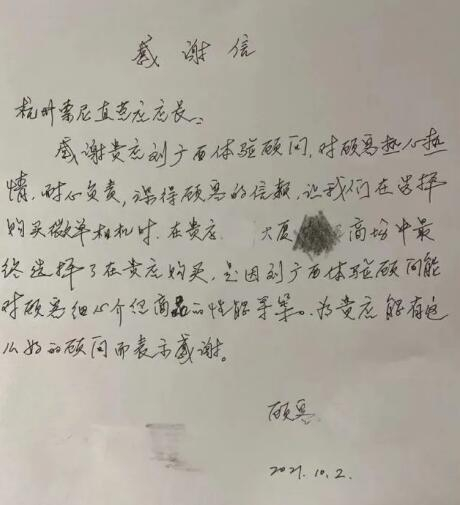 感谢信
杭州索尼直营店店长：
感谢贵店刘广西体验顾问，对顾客热心热
情，耐心负责，深得顾客的信赖，让我们在选择
购买微单相机时，在贵店 大厦 商场中最
终选择了在贵店购买，是因刘广西体验顾问能
对顾客细心介绍商品的性能等等。为贵店能有这
么好的顾问而表示感谢。
顾客
2021.10.2.